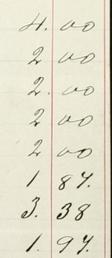 4. 00
2 00
2. 00
2 00
2 00
1 87.
3. 38
1. 97.